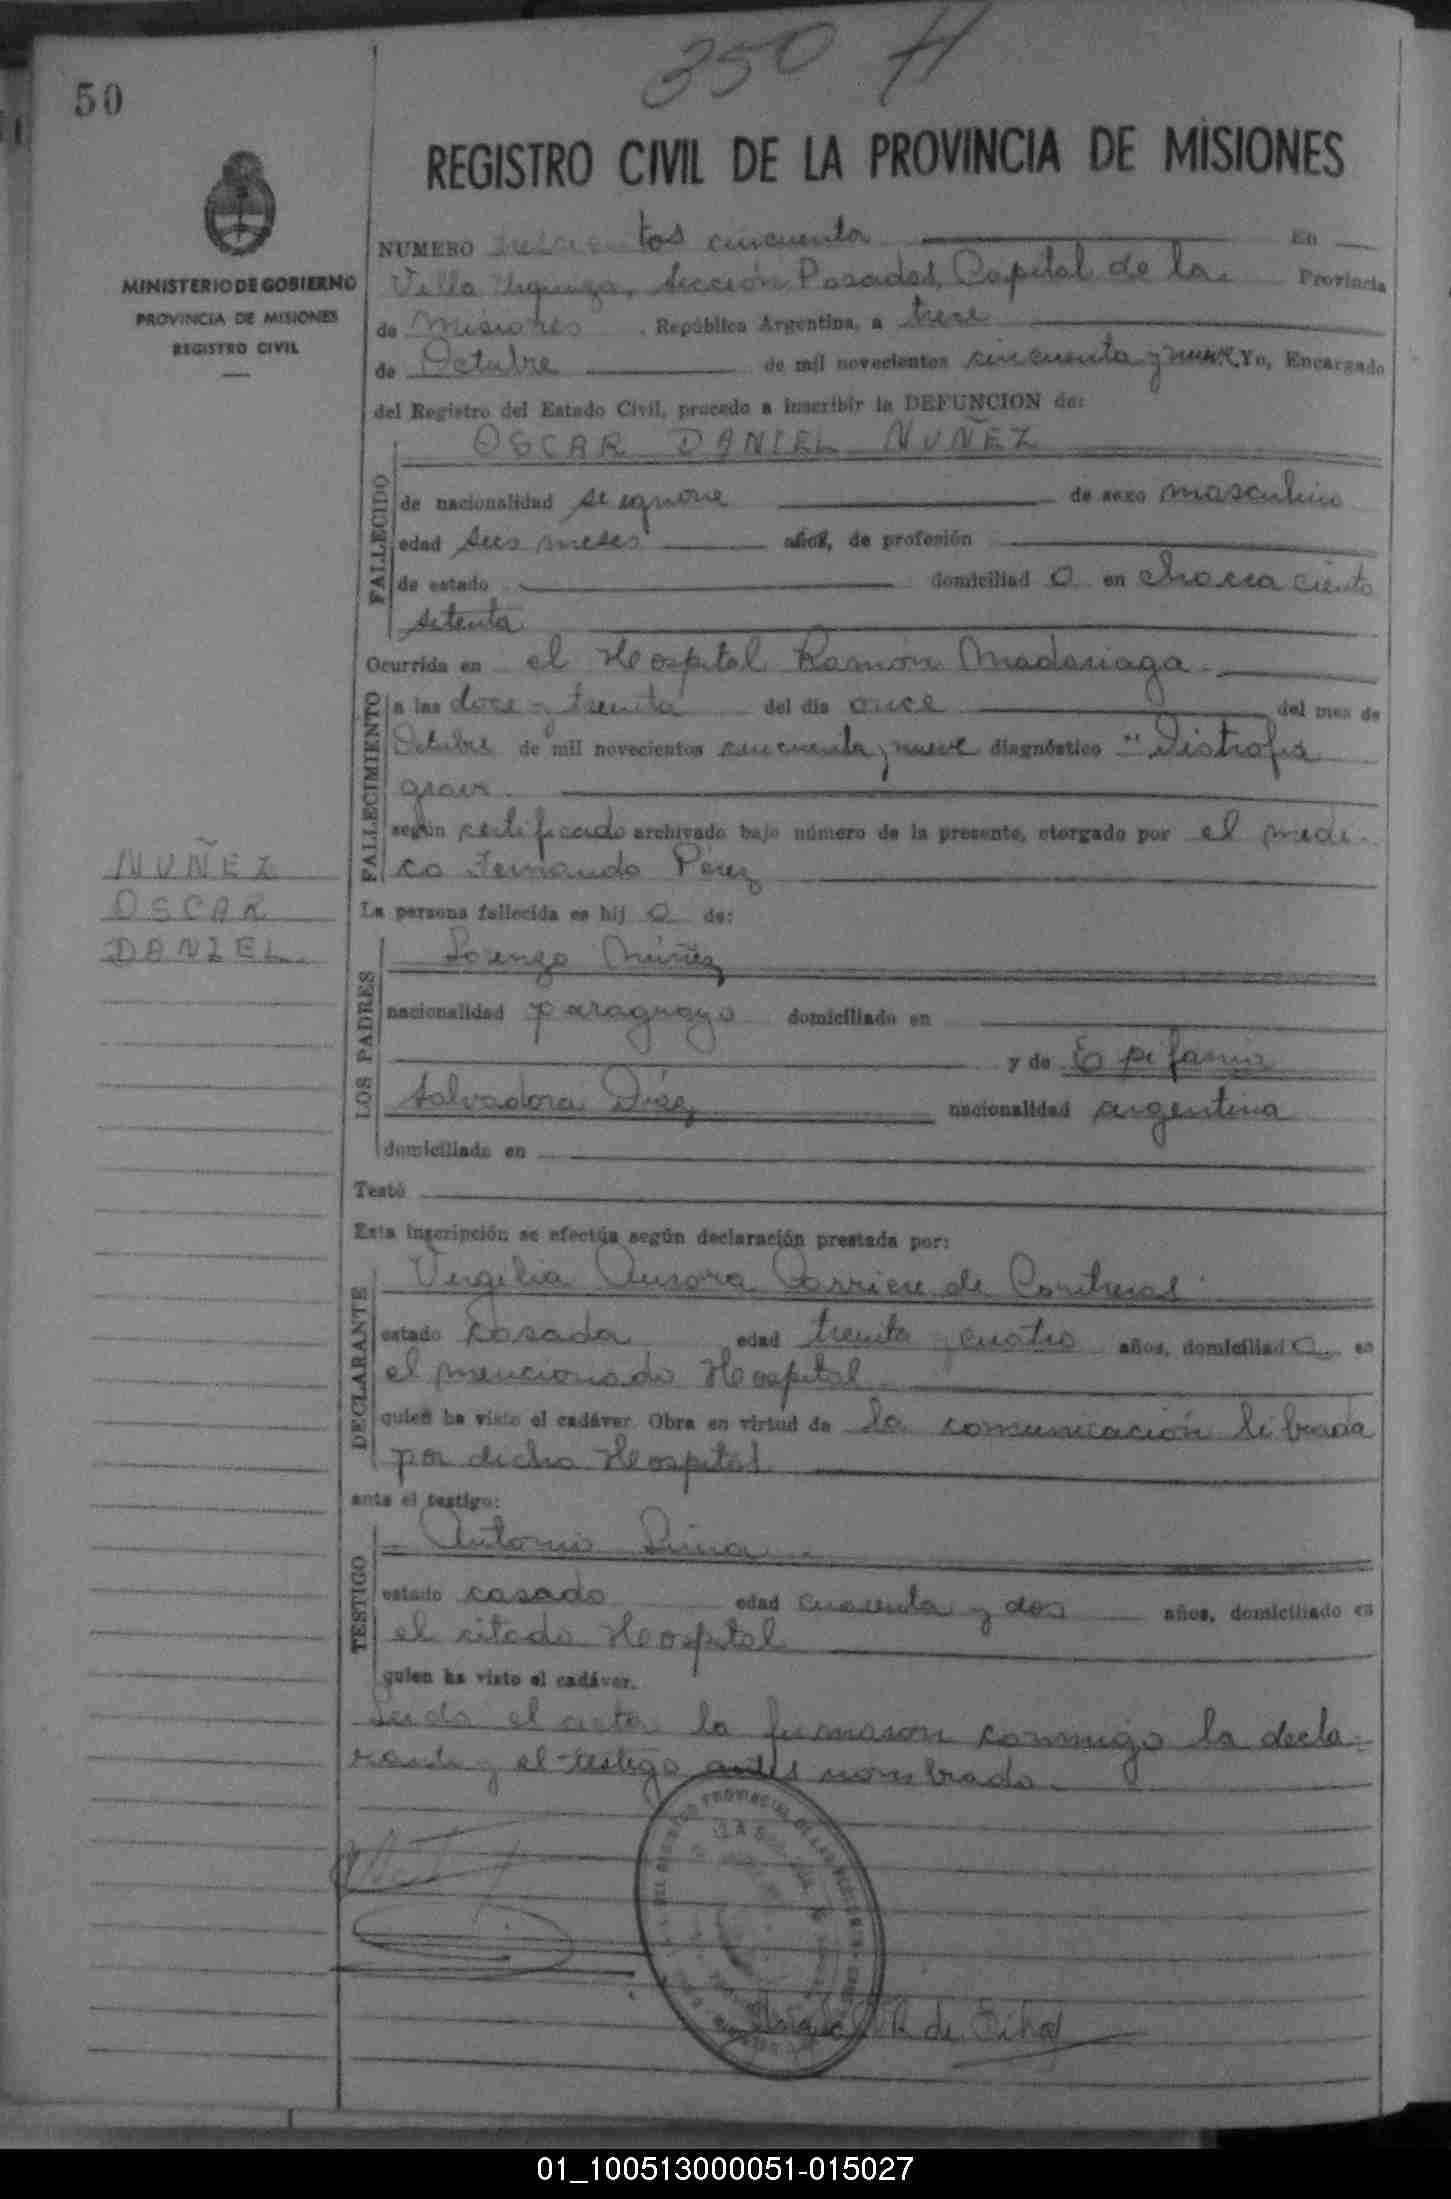 350 H
50
REGISTRO CIVIL DE LA PROVINCIA DE MISIONES
MINISTERIO DE GOBIERNO
PROVINCIA DE MISIONES
REGISTRO CIVIL
NUMERO trescientos cincuenta En
Villa Urquiza, Sección Posadas, Capital de la Provincia
de Misiones, República Argentina, a trece
de Octubre de mil novecientos cincuenta y nueve Yo, Encargado
del Registro del Estado Civil, procedo a inscribir la DEFUNCION de:
FALLECIDO
OSCAR DANIEL NUÑEZ
de nacionalidad se ignore de sexo masculino
edad seis meses años, de profesión
de estado domiciliad o en chacra ciento
setenta
Ocurrida en el Hospital Ramón Madariaga
FALLECIMIENTO
a las doce y treinta del día once del mes de
Octubre de mil novecientos cincuenta y nueve diagnóstico "Distrofia
grave
según certificado archivado bajo número de la presente, otorgado por el médi-
co Fernando Pérez
NUÑEZ
OSCAR
DANIEL
La persona fallecida es hij o de:
LOS PADRES
Lorenzo Núñez
nacionalidad paraguayo domiciliado en
y de Epifania
Salvadora Díaz nacionalidad argentina
domiciliada en
Testó
Esta inscripción se efectúa según declaración prestada por:
DECLARANTE
Virgilia Aurora de Contreras
estado casada edad treinta y cuatro años, domiciliad a en
el mencionado Hospital
quien ha visto el cadáver. Obra en virtud de la comunicación librada
por dicho Hospital
ante el testigo:
TESTIGO
Antonio
estado casado edad cuarenta y dos años, domiciliado en
el citado Hospital
quien ha visto el cadáver.
Leida el acta la firmaron conmigo la decla-
rante y el testigo antes nombrado
01_100513000051-015027